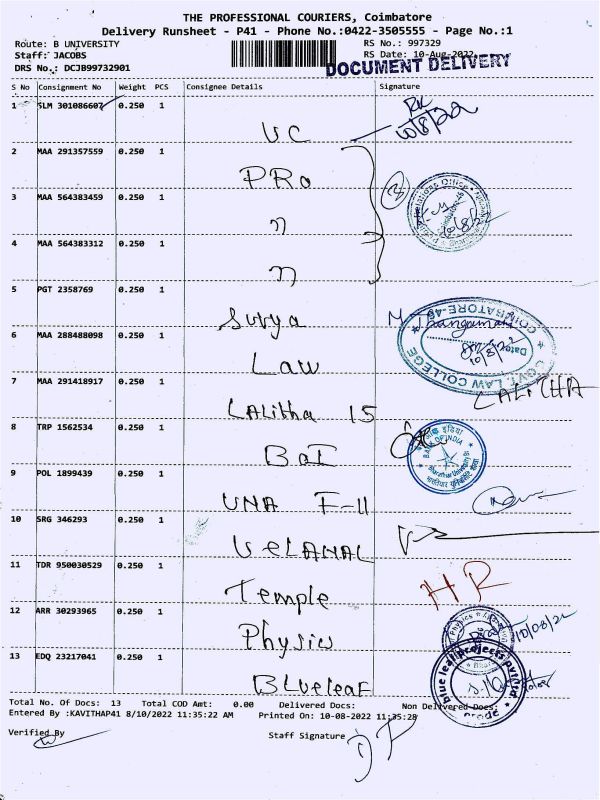 THE PROFESSIONAL COURIERS, Coimbatore
Delivery Runsheet - P41 - Phone No.:0422-3505555 - Page No.:1
Route: B UNIVERSITY RS No.: 997329
Staff: JACOBS RS Date: 10-Aug-2022
DRS No.: DCJB99732901 DOCUMENT DELIVERY
S No Consignment No Weight PCS Consignee Details Signature
1 SLM 301086607 0.250 1 VC 10/8/22
2 MAA 291357559 0.250 1 PRO
3 MAA 564383459 0.250 1 " 3 Relations Office 10/8/22
4 MAA 564383312 0.250 1 "
5 PGT 2358769 0.250 1 Surya
6 MAA 288488098 0.250 1 Law COIMBATORE-46 GOVT. LAW COLLEGE Date 10/8/22
7 MAA 291418917 0.250 1 LALitha 15 LALITHA
8 TRP 1562534 0.250 1 BOI BANK OF INDIA
9 POL 1899439 0.250 1 UNA F-11
10 SRG 346293 0.250 1 VELANAL
11 TDR 950030529 0.250 1 Temple HR
12 ARR 30293965 0.250 1 Physics Physics 10/08/22
13 EDQ 23217041 0.250 1 BLueleaf blue leaf projects pvt ltd
Total No. Of Docs: 13 Total COD Amt: 0.00 Delivered Docs: Non Delivered Docs:
Entered By :KAVITHAP41 8/10/2022 11:35:22 AM Printed On: 10-08-2022 11:35:28
Verified By Staff Signature